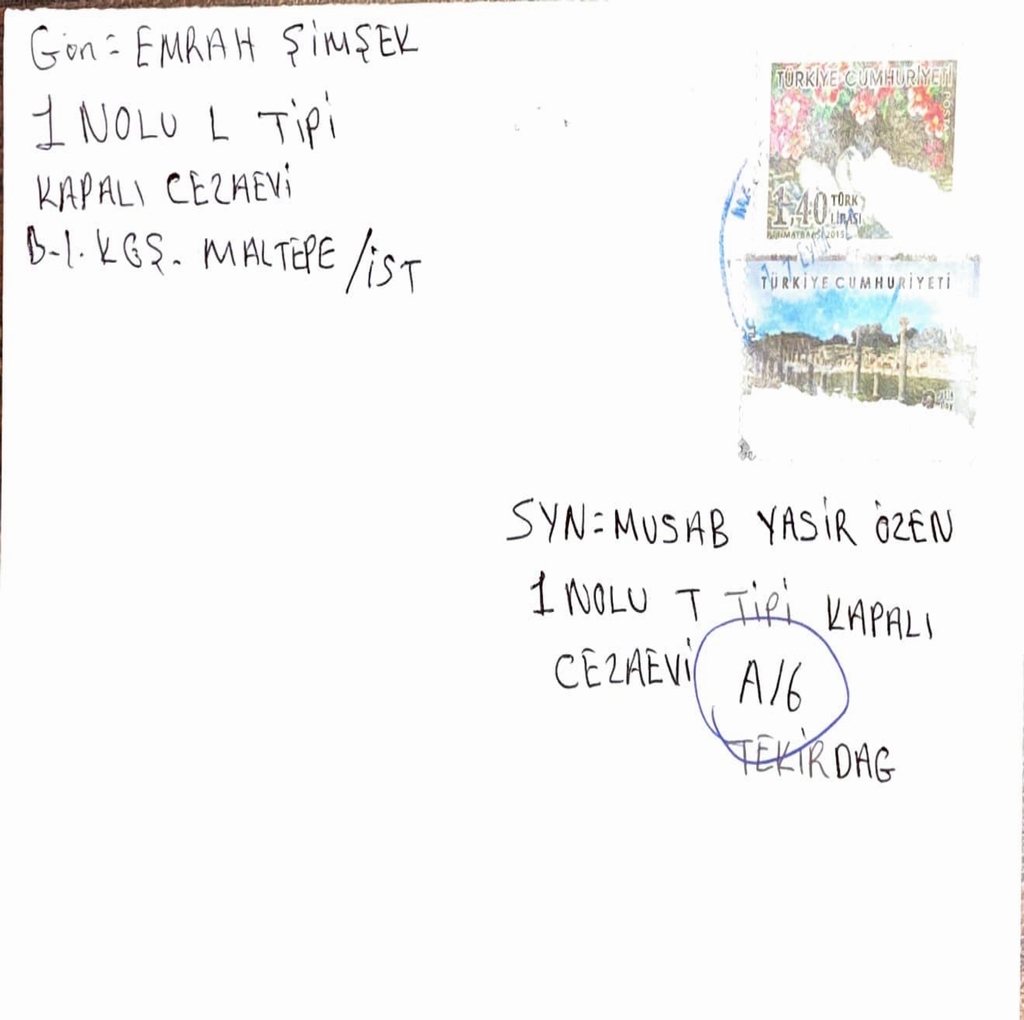 Gön= EMRAH ŞİMŞEK
1 NOLU L TİPİ
KAPALI CEZAEVİ
B-1. KĞŞ. MALTEPE /İST
TÜRKİYE CUMHURİYETİ
POSTA
1,40 TÜRK
LİRASI
TÜRKİYE CUMHURİYETİ
SYN=MUSAB YASİR ÖZEN
1 NOLU T TİPİ KAPALI
CEZAEVİ A/6
TEKİRDAG